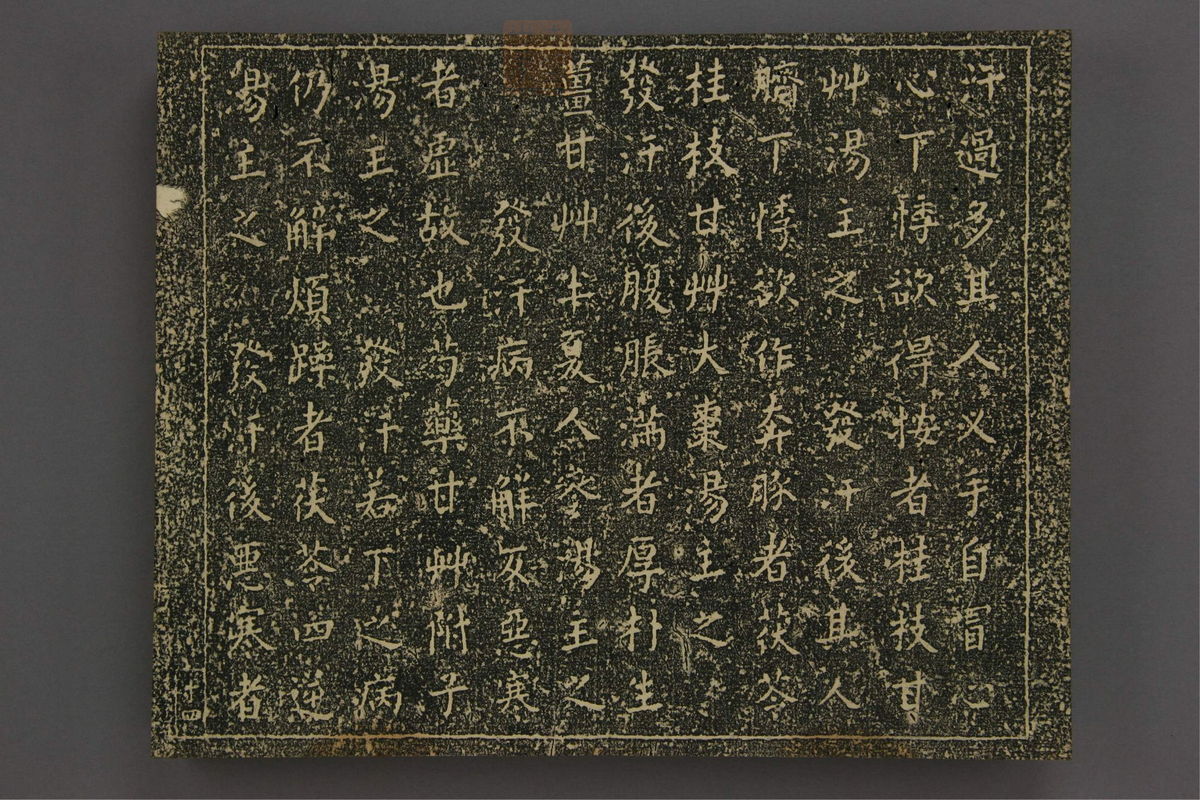 汗過多其人叉手自冒心
心下悸欲得按者桂枝甘
艸湯主之 發汗後其人
臍下悸欲作奔豚者茯苓
桂枝甘艸大棗湯主之
發汗後腹脹滿者厚朴生
薑甘艸半夏人蓡湯主之
發汗病不解反惡寒
者虛故也芍藥甘艸附子
湯主之 發汗若下之病
仍不解煩躁者茯苓四逆
湯主之 發汗後惡寒者